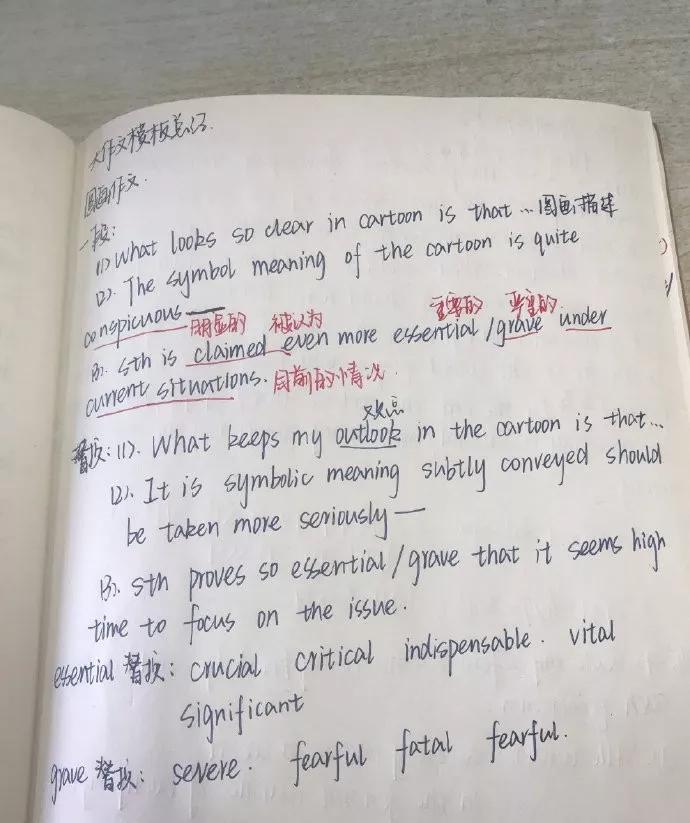 大作文模板总结.
图画作文.
一段:
(1) What looks so clear in cartoon is that ... 图画描述
(2). The symbol meaning of the cartoon is quite
conspicuous — 明显的 被认为 主要的 严重的
(3). sth is claimed even more essential / grave under
current situations. 目前的情况.
关注点
替换: (1). What keeps my outlook in the cartoon is that...
(2). It is symbolic meaning subtly conveyed should
be taken more seriously —
(3). sth proves so essential / grave that it seems high
time to focus on the issue.
essential 替换: crucial critical indispensable. vital
significant
grave 替换: severe. fearful fatal fearful.